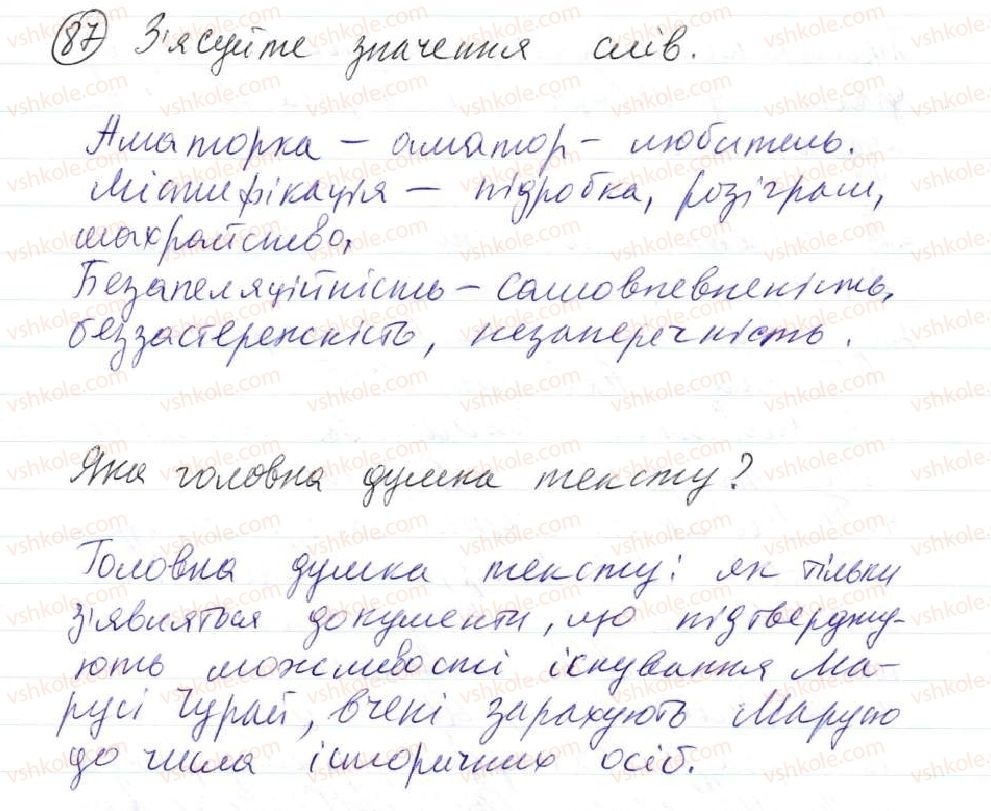 87 З'ясуйте значення слів.
Аматорка – аматор – любитель.
Містифікація – підробка, розіграш,
шахрайство.
Безапеляційність – самовпевненість,
беззастережність, незаперечність.
Яка головна думка тексту?
Головна думка тексту: як тільки
з'являться документи, що підтверджу-
ють можливості існування Ма-
русі Чурай, вчені зарахують Марусю
до числа історичних осіб.
vshkole.com